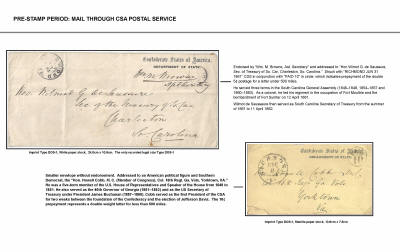 PRE-STAMP PERIOD: MAIL THROUGH CSA POSTAL SERVICE
Confederate States of America,
DEPARTMENT OF STATE.
Wm M Browne
Hon. Wilmot G. deSaussure
Sec. of the Treasury of So Car
Charleston
So Carolina
Endorsed by "Wm. M. Browne, Asst. Secretary" and addressed to "Hon Wilmot G. de Saussure,
Sec. of Treasury of So. Car, Charleston, So. Carolina." Struck with "RICHMOND JUN 31
1861" CDS in conjunction with "PAID 10" in circle which indicates prepayment of the double
5¢ postage for a letter under 500 miles.
He served three terms in the South Carolina General Assembly (1848-1849, 1854-1857 and
1860-1863). As a colonel, he led his regiment in the occupation of Fort Moultrie and the
bombardment of Fort Sumter on 12 April 1861.
Wilmot de Saussure then served as South Carolina Secretary of Treasury from the summer
of 1861 to 11 April 1862.
Imprint Type DOS-1, White paper stock. The only recorded legal size Type DOS-1
Smaller envelope without endorsement. Addressed to an American political figure and Southern
Democrat, the "Hon. Howell Cobb, M. C. (Member of Congress), Col. 16th Regt. Ga. Vols, Yorktown, VA."
He was a five-term member of the U.S. House of Representatives and Speaker of the House from 1849 to
1851. He also served as the 40th Governor of Georgia (1851-1853) and as the US Secretary of
Treasury under President James Buchanan (1857-1860). Cobb served as the first President of the CSA
for two weeks between the foundation of the Confederacy and the election of Jefferson Davis. The 10¢
prepayment represents a double weight letter for less than 500 miles.
Confederate States of America,
DEPARTMENT OF STATE.
Howell Cobb, M.C.
Yorktown
Va
Imprint Type DOS-1, Manila paper stock.